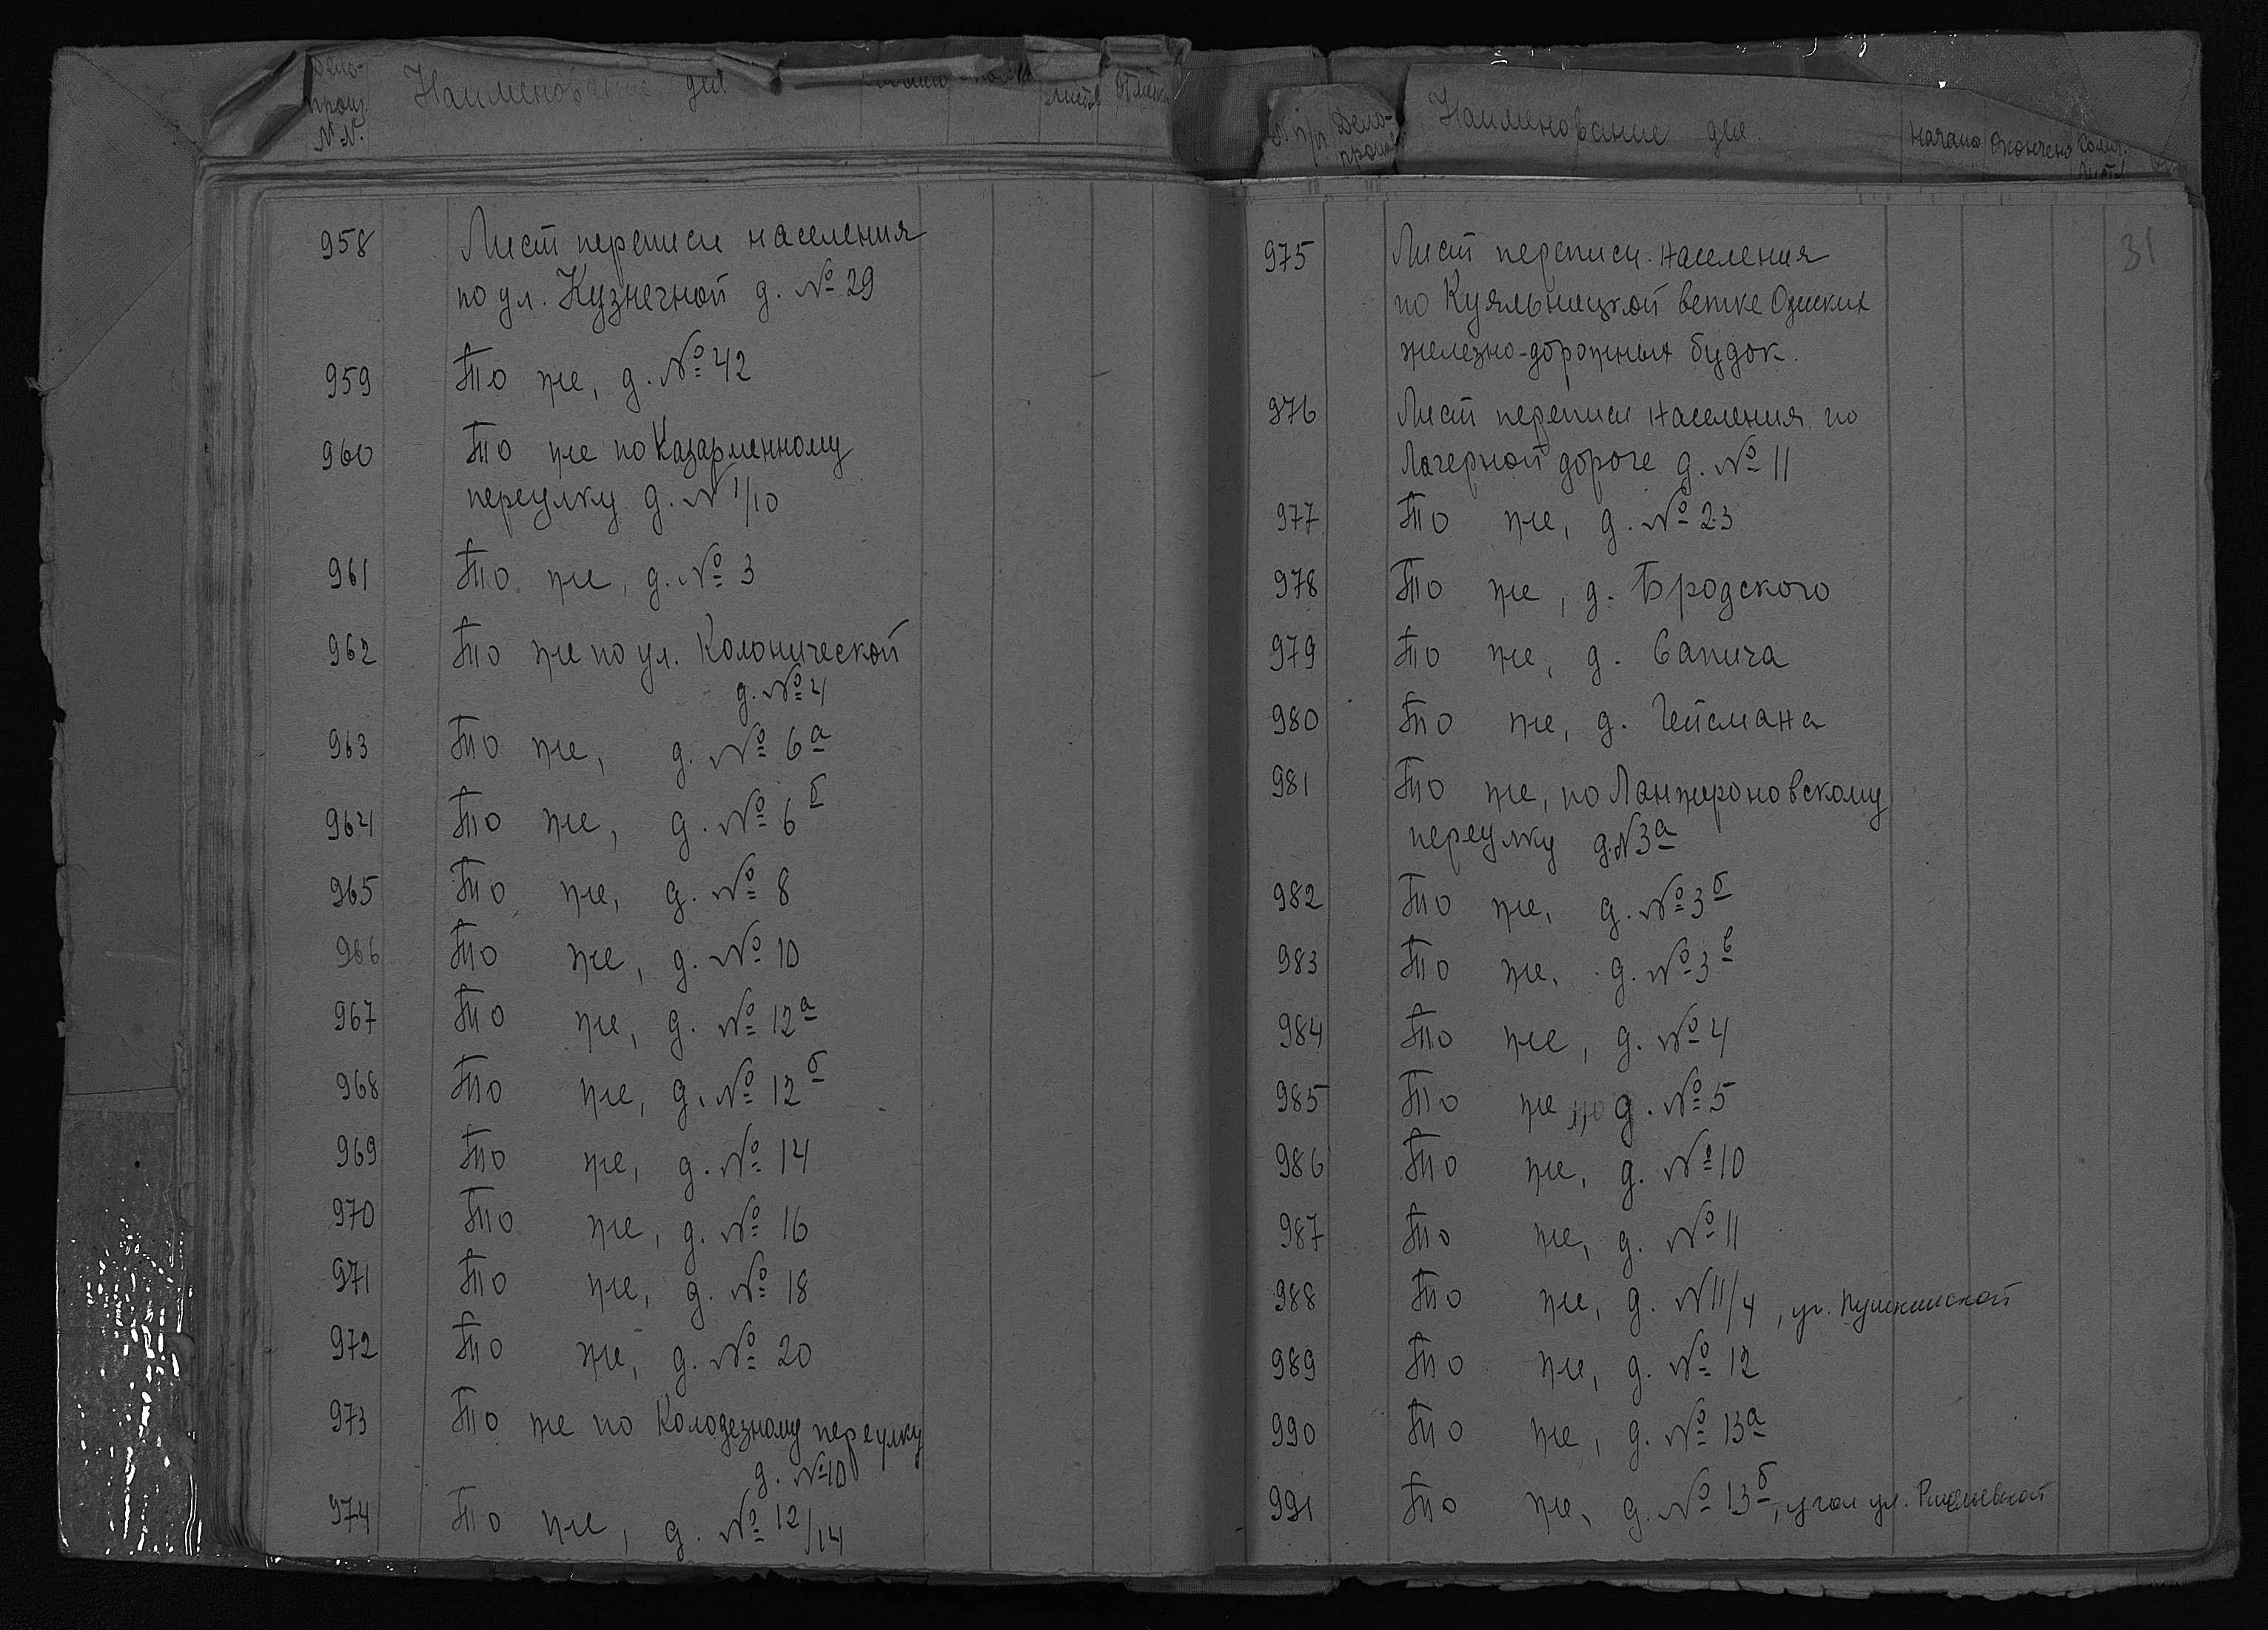 Дело-
произ.
№№.
Наименование дел
листов
958 Лист переписи населения
по ул. Кузнечной д. № 29
959 То же, д. № 42
960 То же по Казарменному
переулку д. № 1/10
961 То же, д. № 3
962 То же по ул. Колонической
д. № 4
963 То же, д. № 6а
964 То же, д. № 6б
965 То же, д. № 8
966 То же, д. № 10
967 То же, д. № 12а
968 То же, д. № 12б
969 То же, д. № 14
970 То же, д. № 16
971 То же, д. № 18
972 То же, д. № 20
973 То же по Колодезному переулку
д. № 10
974 То же, д. № 12/14
п/п Дело-
произ
Наименование дел.
Начато Окончено Колич.
лист.
31
975 Лист переписи населения
по Куяльницкой ветке
железно-дорожных будок.
976 Лист переписи населения по
Лагерной дороге д. № 11
977 То же, д. № 23
978 То же, д. Бродского
979 То же, д. Сапича
980 То же, д. Гейсмана
981 То же, по Ланжероновскому
переулку д. № 3а
982 То же, д. № 3б
983 То же, д. № 3в
984 То же, д. № 4
985 То же д. № 5
986 То же, д. № 10
987 То же, д. № 11
988 То же, д. № 11/4, уг. Пушкинской
989 То же, д. № 12
990 То же, д. № 13а
991 То же, д. № 13б, угол ул. Ришельевской